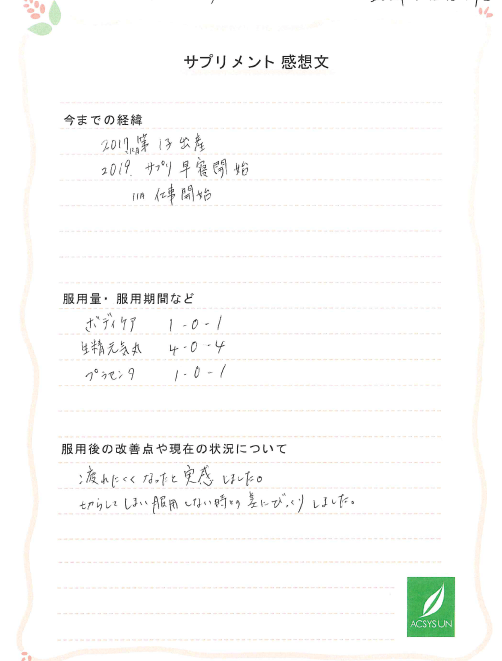 サプリメント 感想文
今までの経緯
2017. 第1子出産
2019. サプリ 早寝開始
11月 仕事開始
服用量・服用期間など
ボディケア 1-0-1
生精元気丸 4-0-4
プラセンタ 1-0-1
服用後の改善点や現在の状況について
疲れにくくなったと実感しました。
切らしてしまい服用しない時との差にびっくりしました。
ACSYSUN